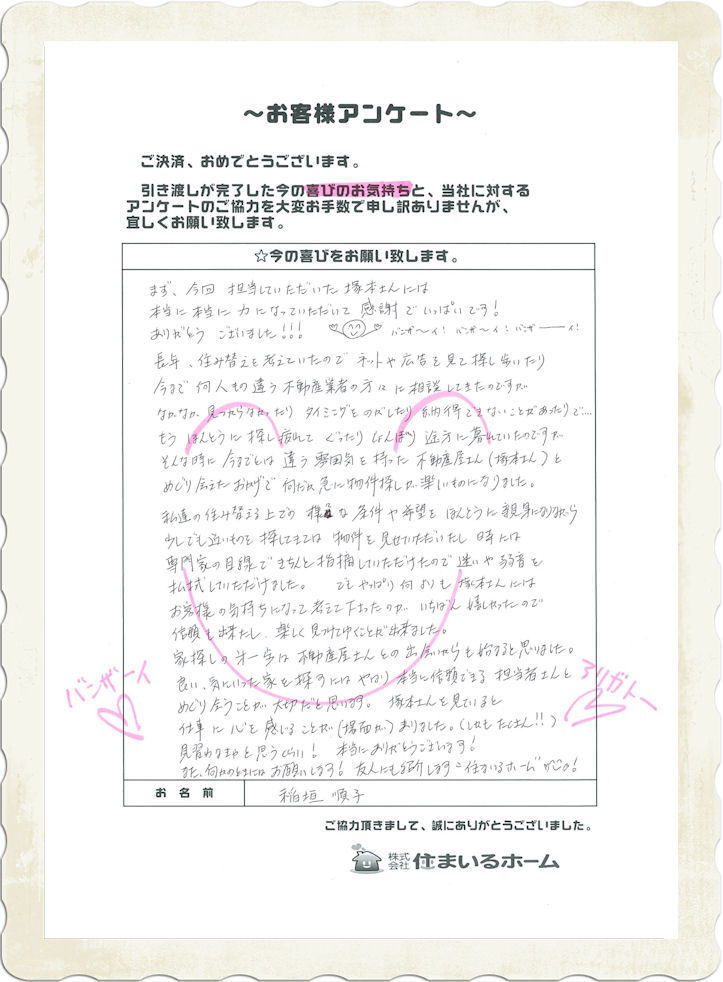 ～お客様アンケート～
ご決済、おめでとうございます。
引き渡しが完了した今の喜びのお気持ちと、当社に対する
アンケートのご協力を大変お手数で申し訳ありませんが、
宜しくお願い致します。
☆今の喜びをお願い致します。
まず、今回 担当していただいた 塚本さんには
本当に 本当に 力になっていただいて 感謝で いっぱいです!
ありがとう ございました!!! バンザーイ! バンザーイ! バンザーーイ!
長年、住み替えを考えていたので ネットや広告を見て探し歩いたり
今まで 何人もの違う不動産業者の方々に相談してきたのですが
なかなか 見つからなかったり タイミングをのがしたり 納得できないことがあったりで…
もう ほんとうに 探し疲れて ぐったり しょんぼり 途方に暮れていたのですが
そんな時に 今までとは 違う 雰囲気を 持った 不動産屋さん(塚本さん)と
めぐり会えた おかげで 何だか 急に物件探しが 楽しいものになりました。
私達の住み替える上での 様々な 条件や希望を ほんとうに 親身になりながら
少しでも近いものを 探してきては 物件を 見せていただいたし 時には
専門家の目線で きちんと指摘していただけたので 迷いや弱音を
払拭していただけました。 でも やっぱり 何よりも 塚本さんには
お客様の気持ちになって 考えて下さったのが いちばん 嬉しかったので
信頼も出来たし、楽しく見つけてゆくことが出来ました。
家探しの 第一歩は 不動産屋さんとの出会いからも始まると思いました。
良い、気にいった家を 探すには やはり 本当に信頼できる 担当者さんと
めぐり会うことが 大切だと思います。 塚本さんを見ていると
仕事に 心を 感じることが(場面が)ありました。(しかも たくさん!!)
見習わなきゃと思うくらい! 本当に ありがとうございます!
また、何かのときには お願いします! 友人にも紹介します 住まいるホームがいいよ!
バンザーイ
アリガトー
お名前 稲垣 順子
ご協力頂きまして、誠にありがとうございました。
株式会社 住まいるホーム